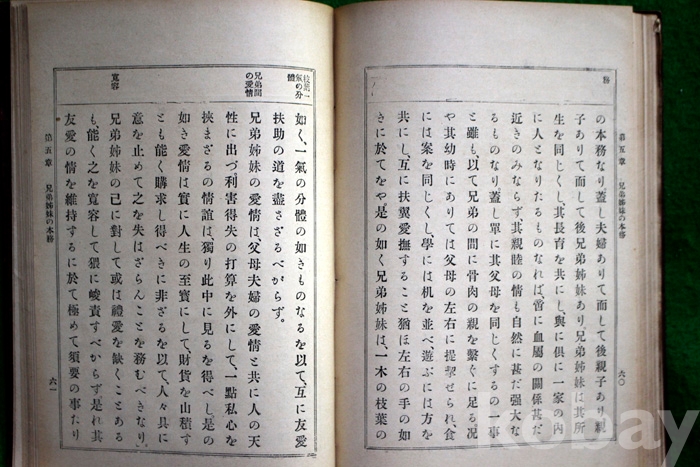 務
の本務なり蓋し夫婦ありて而して後親子あり親
子ありて而して後兄弟姉妹あり、兄弟姉妹は其所
生を同じくし、其長育を共にし、與に倶に一家の内
に人となりたるものなれば、啻に血屬の關係甚だ
近きのみならず、其親睦の情も自然に甚だ强大な
るものなり蓋し單に其父母を同じくするの一事
と雖も、以て兄弟の間に骨肉の親を繫ぐに足る、況
や其幼時にありては父母の左右に提挈せられ、食
には案を同じくし、學には机を並べ、遊ぶには方を
共にし、互に扶翼愛撫すること猶ほ左右の手の如
きに於てをや是の如く兄弟姉妹は、一木の枝葉の
第五章 兄弟姉妹の本務
六〇
枝葉一
氣の分
體
兄弟間
の愛情
寬容
如く、一氣の分體の如きものなるを以て、互に友愛
扶助の道を盡さざるべからず。
兄弟姉妹の愛情は、父母夫婦の愛情と共に人の天
性に出づ利害得失の打算を外にして、一點私心を
挾まざるの情誼は、獨り此中に見るを得べし、是の
如き愛情は實に人生の至寶にして、財貨を山積す
とも能く購求し得べきに非ざるを以て、人々具に
意を止めて之を失はざらんことを務むべきなり、
兄弟姉妹の己に對して或は禮愛を缺くことある
も、能く之を寬容して猥に峻責すべからず是れ其
友愛の情を維持するに於て極めて須要の事たり
第五章 兄弟姉妹の本務
六一
kobay